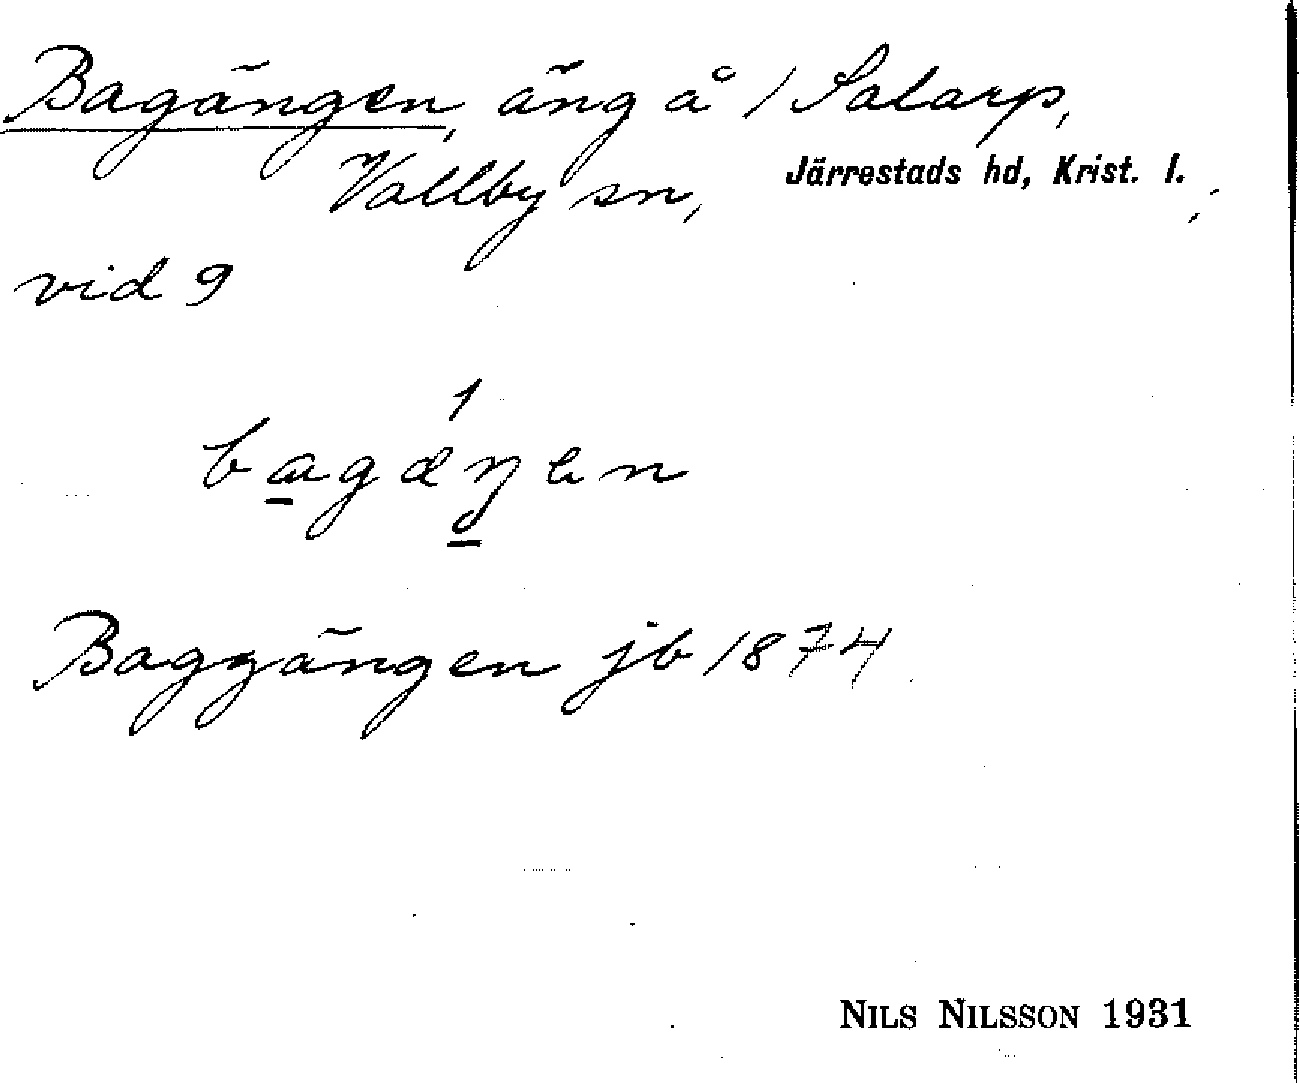 Bagängen, äng å 1 Salarp,
Vallby sn, Järrestads hd, Krist. l.,
vid 9
Baggängen jb 1874
NILS NILSSON 1931